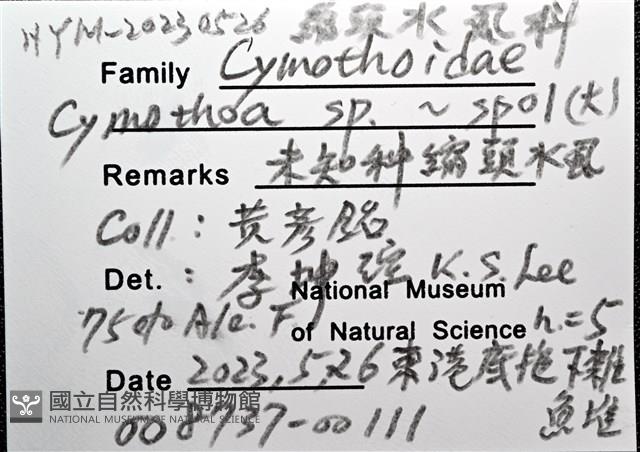 HYM-20230526 縮頭水虱科
Family Cymothoidae
Cymothoa sp. ~ sp01(大)
Remarks 未知科縮頭水虱
Coll: 黃彥銘
Det.: 李坤瑄 K.S. Lee
National Museum
75% Alc. F.
of Natural Science n.=5
Date 2023.5.26 東港底拖下雜
魚堆
國立自然科學博物館
NATIONAL MUSEUM OF NATURAL SCIENCE
008737-00111